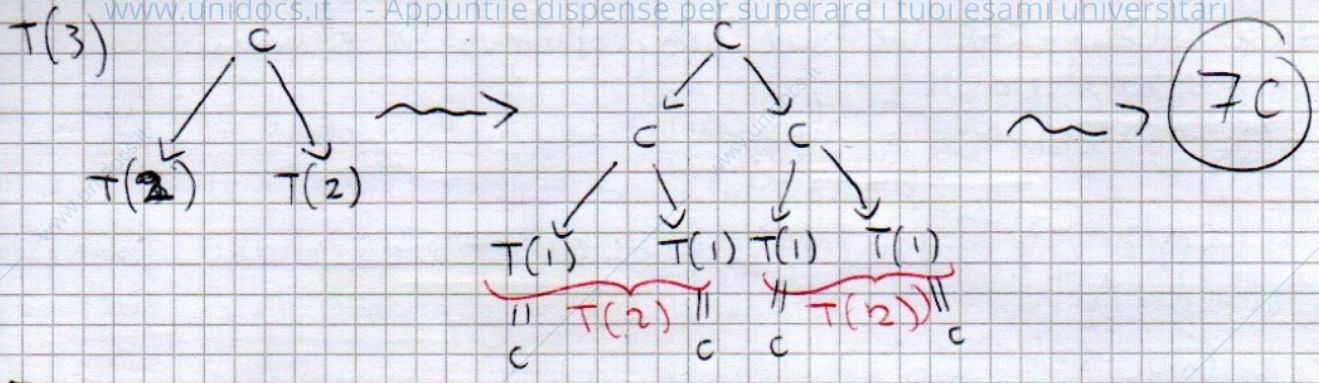 www.unidocs.it - Appunti e dispense per superare i tuoi esami universitari
T(3) C C
C C 7C
T(2) T(2)
T(1) T(1) T(1) T(1)
T(2) T(2)
C C C C
www.unidocs.it